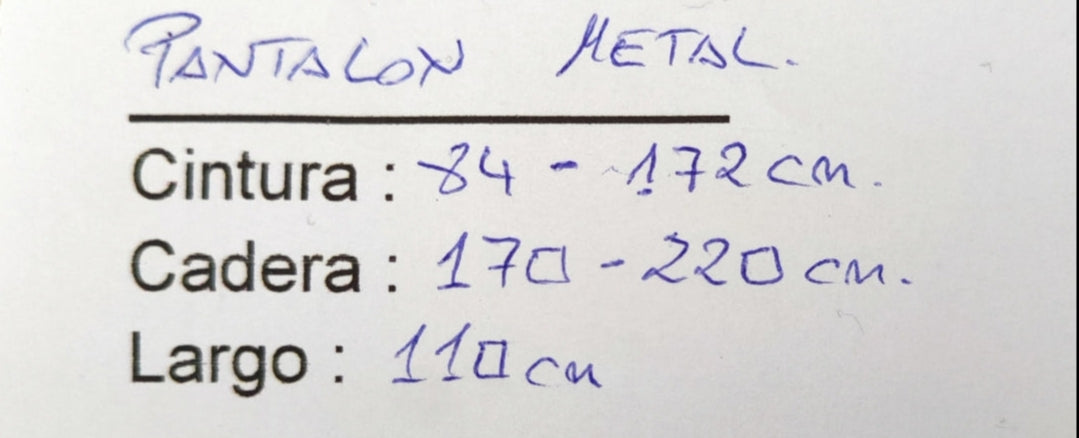 PANTALON METAL.
Cintura : 84 - 172 cm.
Cadera : 170 - 220 cm.
Largo : 110 cm